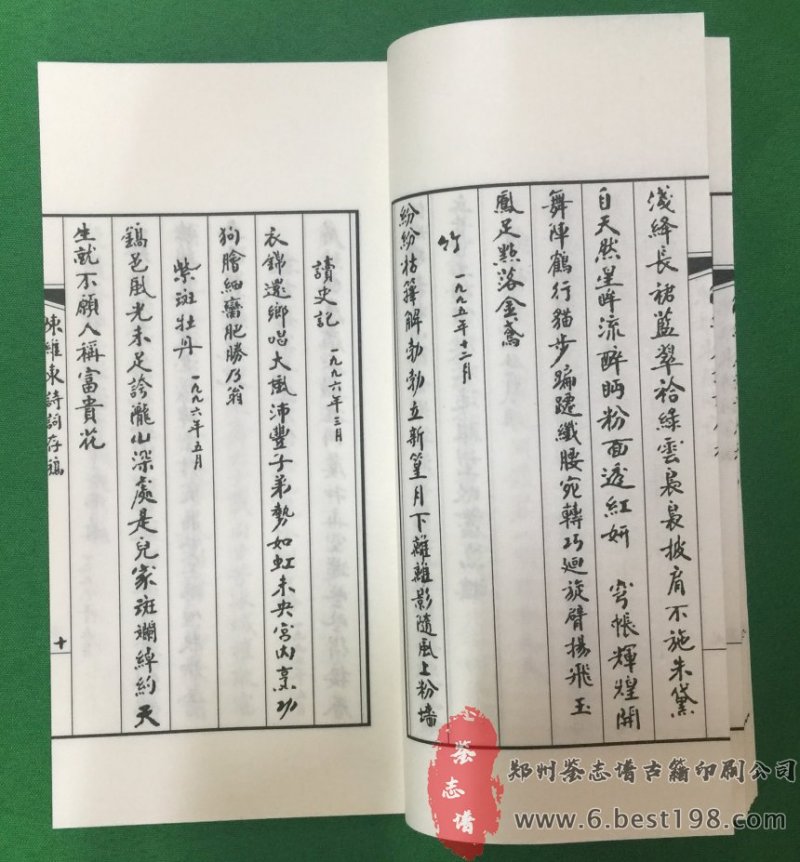 淺絳長裙藍翠袷綠雲裊裊披肩不施朱黛
自天然星眸流醉眄粉面透紅妍 穹帳輝煌開
舞陣鶴行貓步蹁躚纖腰宛轉巧迴旋臂揚飛玉
鳳足點落金鳶
竹 一九九五年十二月
紛紛枯籜解勃勃立新篁月下離離影隨風上粉墻
讀史記 一九九六年三月
衣錦還鄉唱大風沛豐子弟勢如虹未央宮內烹功
狗膾細臠肥勝乃翁
紫斑牡丹 一九九六年五月
鎬邑風光未足誇瀧山深處是兒家斑斕綽約天
生就不願人稱富貴花
陳維東詩詞存稿
十
鉴志谱
郑州鉴志谱古籍印刷公司
www.6.best198.com